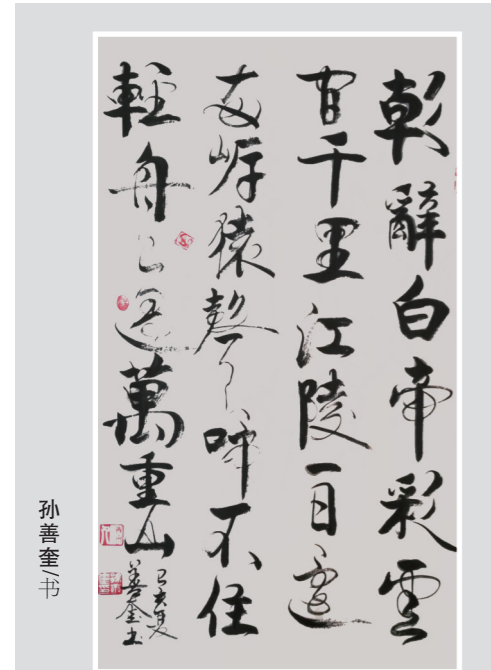 朝辭白帝彩雲
間千里江陵一日還
兩岸猿聲啼不住
輕舟已過萬重山
己亥夏
善奎书
孙善奎/书